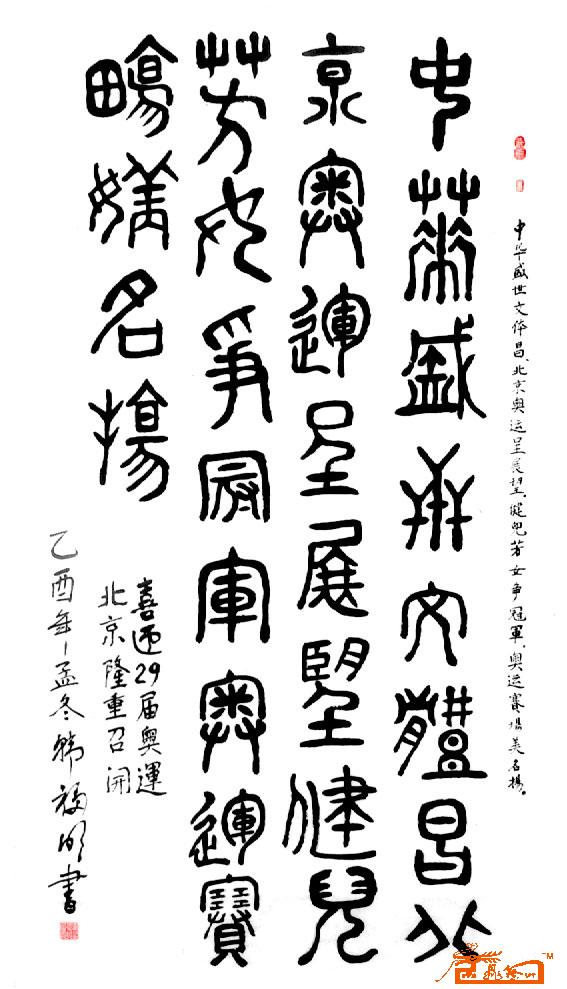 中华盛世文体昌、北京奥运呈展望、健児芳女争冠軍、奥运賽場美名揚。
中華盛世文體昌北
京奧運呈展望健兒
芳女爭冠軍奧運賽
場美名揚
喜迎29届奥運
北京隆重召開
乙酉年孟冬韩福書